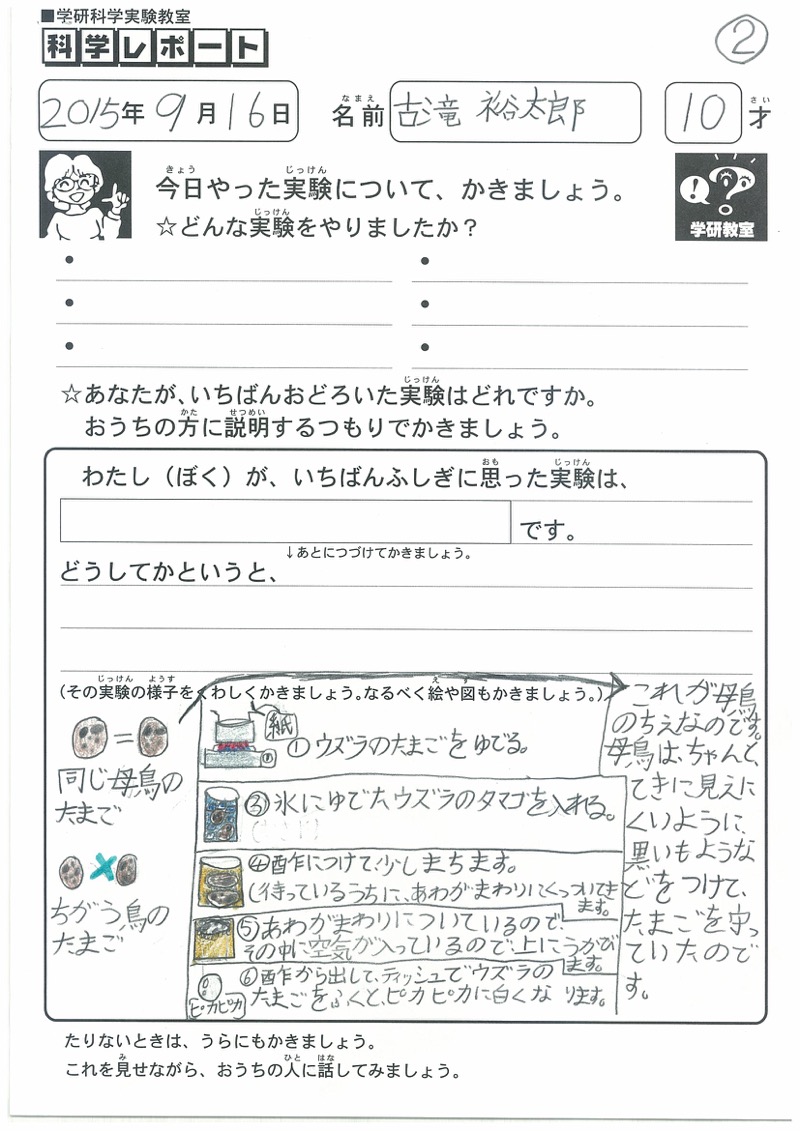 ■学研科学実験教室
科学レポート
②
2015年9月16日
名前 古滝 裕太郎
10才
今日やった実験について、かきましょう。
☆どんな実験をやりましたか？
学研教室
☆あなたが、いちばんおどろいた実験はどれですか。
おうちの方に説明するつもりでかきましょう。
わたし（ぼく）が、いちばんふしぎに思った実験は、
です。
↓あとにつづけてかきましょう。
どうしてかというと、
（その実験の様子をくわしくかきましょう。なるべく絵や図もかきましょう。）
=
同じ母鳥の
たまご
×
ちがう鳥の
たまご
紙
①ウズラのたまごをゆでる。
③氷にゆでたウズラのタマゴを入れる。
④酢につけて、少しまちます。
(待っているうちに、あわがまわりにくっついてき
ます。
⑤あわがまわりについているので、
その中に空気が入っているので、上にうかび
ます。
ピカピカ
⑥酢から出して、ティッシュでウズラの
たまごをふくと、ピカピカに白くな ります。
これが母鳥
のちえなのです。
母鳥は、ちゃんと、
てきに見えに
くいように、
黒いもような
どをつけて、
たまごを守っ
ていたので
す。
たりないときは、うらにもかきましょう。
これを見せながら、おうちの人に話してみましょう。